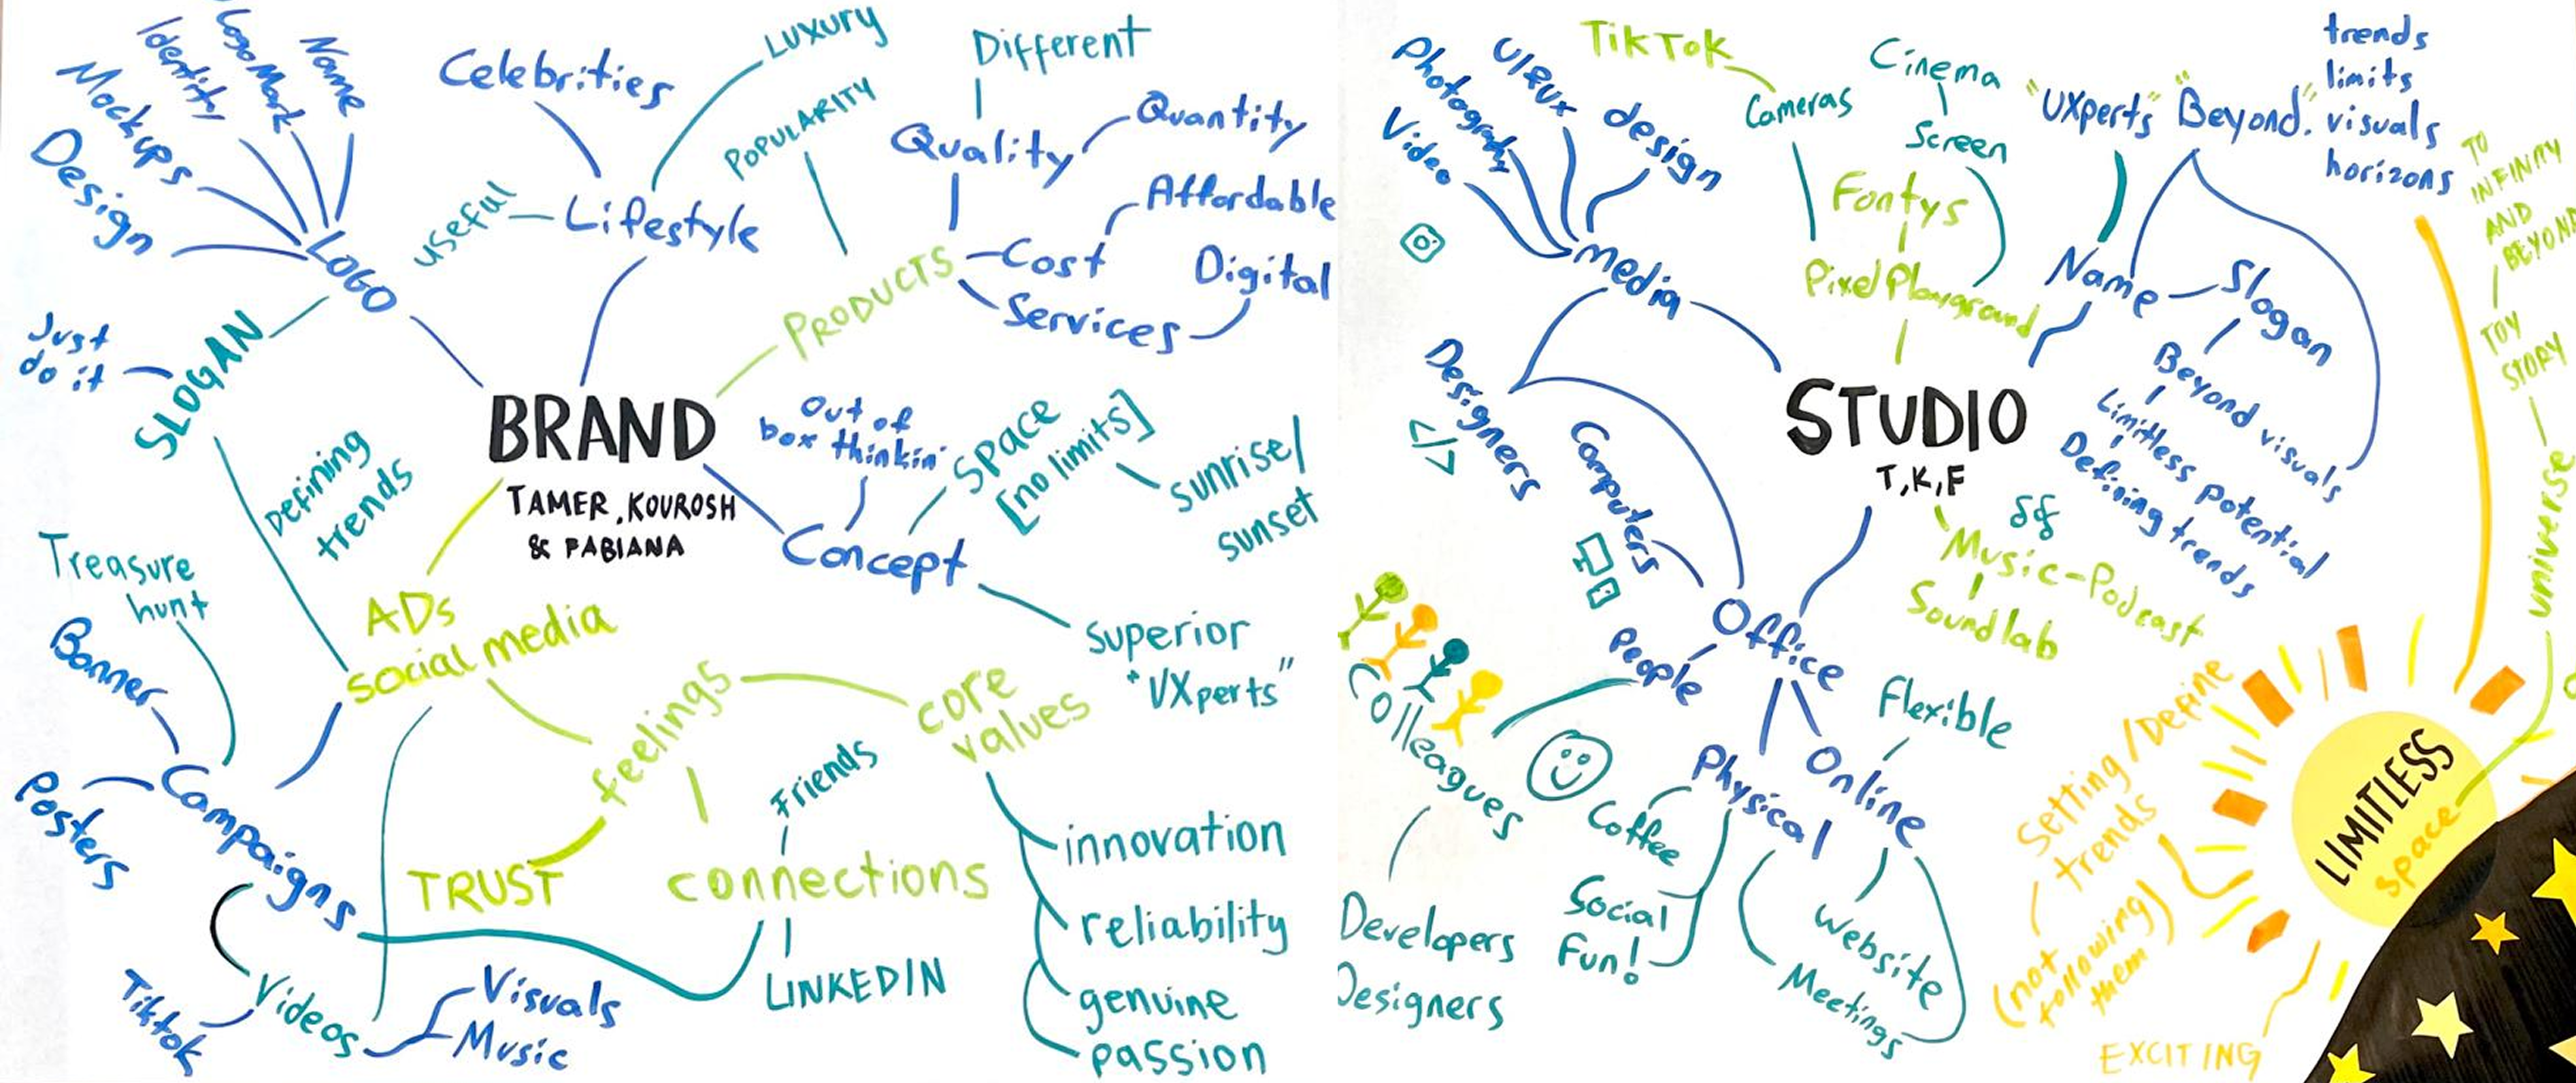 Design
Mockups
Identity
Logo Mark
Name
LOGO
SLOGAN
Just
do it
Celebrities
LUXURY
useful
Lifestyle
POPULARITY
PRODUCTS
Different
Quality
Quantity
Cost
Affordable
Services
Digital
BRAND
TAMER, KOUROSH
& FABIANA
Out of
box thinkin'
Space
[no limits]
sunrise/
sunset
Concept
superior
"UXperts"
Defining
trends
ADs
social media
Treasure
hunt
Banner
Posters
Campaigns
Videos
Tiktok
Visuals
Music
feelings
TRUST
connections
Friends
LINKEDIN
core
values
innovation
reliability
genuine
passion
Video
Photography
UI&UX
design
media
TikTok
Cameras
Cinema
Screen
Fontys
Pixel Playground
"UXperts"
"Beyond".
trends
limits
visuals
horizons
Name
Slogan
Beyond visuals
Limitless potential
Defining trends
TO
INFINITY
AND
BEYOND
TOY
STORY
universe
STUDIO
T,K,F
Music-Podcast
Sound lab
Designers
</>
Computers
Office
People
Colleagues
Developers
Designers
Physical
Coffee
Social
Fun!
Online
Flexible
Website
Meetings
Setting/Define
trends
(not
following
them)
EXCITING
LIMITLESS
space